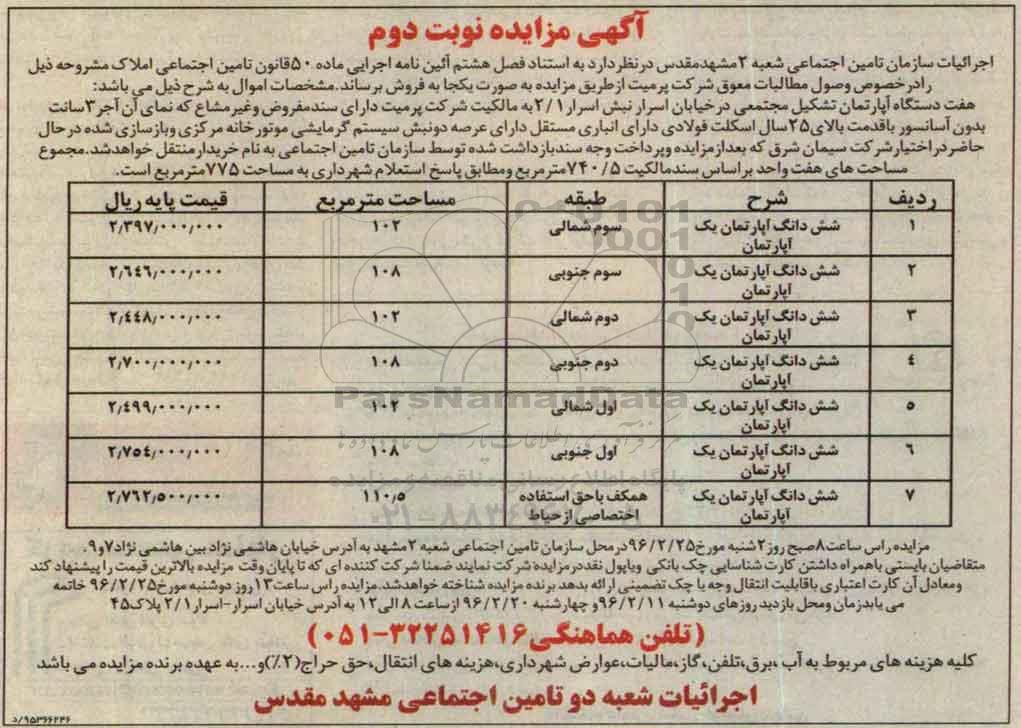 آگهی مزایده نوبت دوم
اجرائیات سازمان تامین اجتماعی شعبه ۲مشهدمقدس درنظردارد به استناد فصل هشتم آئین نامه اجرایی ماده ۵۰قانون تامین اجتماعی املاک مشروحه ذیل
رادرخصوص وصول مطالبات معوق شرکت پرمیت ازطریق مزایده به صورت یکجا به فروش برساند.مشخصات اموال به شرح ذیل می باشد:
هفت دستگاه آپارتمان تشکیل مجتمعی درخیابان اسرار نبش اسرار۲/۱به مالکیت شرکت پرمیت دارای سندمفروض وغیرمشاع که نمای آن آجر۳سانت
بدون آسانسور باقدمت بالای۲۵سال اسکلت فولادی دارای انباری مستقل دارای عرصه دونبش سیستم گرمایشی موتورخانه مرکزی وبازسازی شده درحال
حاضردراختیارشرکت سیمان شرق که بعدازمزایده وپرداخت وجه سندبازداشت شده توسط سازمان تامین اجتماعی به نام خریدارمنتقل خواهدشد.مجموع
مساحت های هفت واحد براساس سندمالکیت ۷۴۰/۵مترمربع ومطابق پاسخ استعلام شهرداری به مساحت ۷۷۵مترمربع است.
ردیف شرح طبقه مساحت مترمربع قیمت پایه ریال
۱ شش دانگ آپارتمان یک آپارتمان سوم شمالی ۱۰۲ ۲٫۳۹۷٫۰۰۰٫۰۰۰
۲ شش دانگ آپارتمان یک آپارتمان سوم جنوبی ۱۰۸ ۲٫۶۴۶٫۰۰۰٫۰۰۰
۳ شش دانگ آپارتمان یک آپارتمان دوم شمالی ۱۰۲ ۲٫۴۴۸٫۰۰۰٫۰۰۰
۴ شش دانگ آپارتمان یک آپارتمان دوم جنوبی ۱۰۸ ۲٫۷۰۰٫۰۰۰٫۰۰۰
۵ شش دانگ آپارتمان یک آپارتمان اول شمالی ۱۰۲ ۲٫۴۹۹٫۰۰۰٫۰۰۰
۶ شش دانگ آپارتمان یک آپارتمان اول جنوبی ۱۰۸ ۲٫۷۵۴٫۰۰۰٫۰۰۰
۷ شش دانگ آپارتمان یک آپارتمان همکف باحق استفاده اختصاصی ازحیاط ۱۱۰٫۵ ۲٫۷۶۲٫۵۰۰٫۰۰۰
ParsNamadData
مزایده راس ساعت۸صبح روز۲شنبه مورخ۹۶/۲/۲۵درمحل سازمان تامین اجتماعی شعبه ۲مشهد به آدرس خیابان هاشمی نژاد بین هاشمی نژاد۷و۹.
متقاضیان بایستی باهمراه داشتن کارت شناسایی چک بانکی ویاپول نقددرمزایده شرکت نمایند ضمنا شرکت کننده ای که تا پایان وقت مزایده بالاترین قیمت را پیشنهاد کند
ومعادل آن کارت اعتباری باقابلیت انتقال وجه یا چک تضمینی ارائه بدهد برنده مزایده شناخته خواهدشد.مزایده راس ساعت۱۳روز دوشنبه مورخ۹۶/۲/۲۵ خاتمه
می یابدزمان ومحل بازدید روزهای دوشنبه ۹۶/۲/۱۱و چهارشنبه ۹۶/۲/۲۰ ازساعت ۸ الی۱۲ به آدرس خیابان اسرار-اسرار۲/۱ پلاک۴۵
(تلفن هماهنگی۳۲۲۵۱۴۱۶-۰۵۱)
کلیه هزینه های مربوط به آب ،برق،تلفن،گاز،مالیات،عوارض شهرداری،هزینه های انتقال،حق حراج(۲٪)و...به عهده برنده مزایده می باشد
اجرائیات شعبه دو تامین اجتماعی مشهد مقدس
۹۵۳۶۶۲۳۶/د